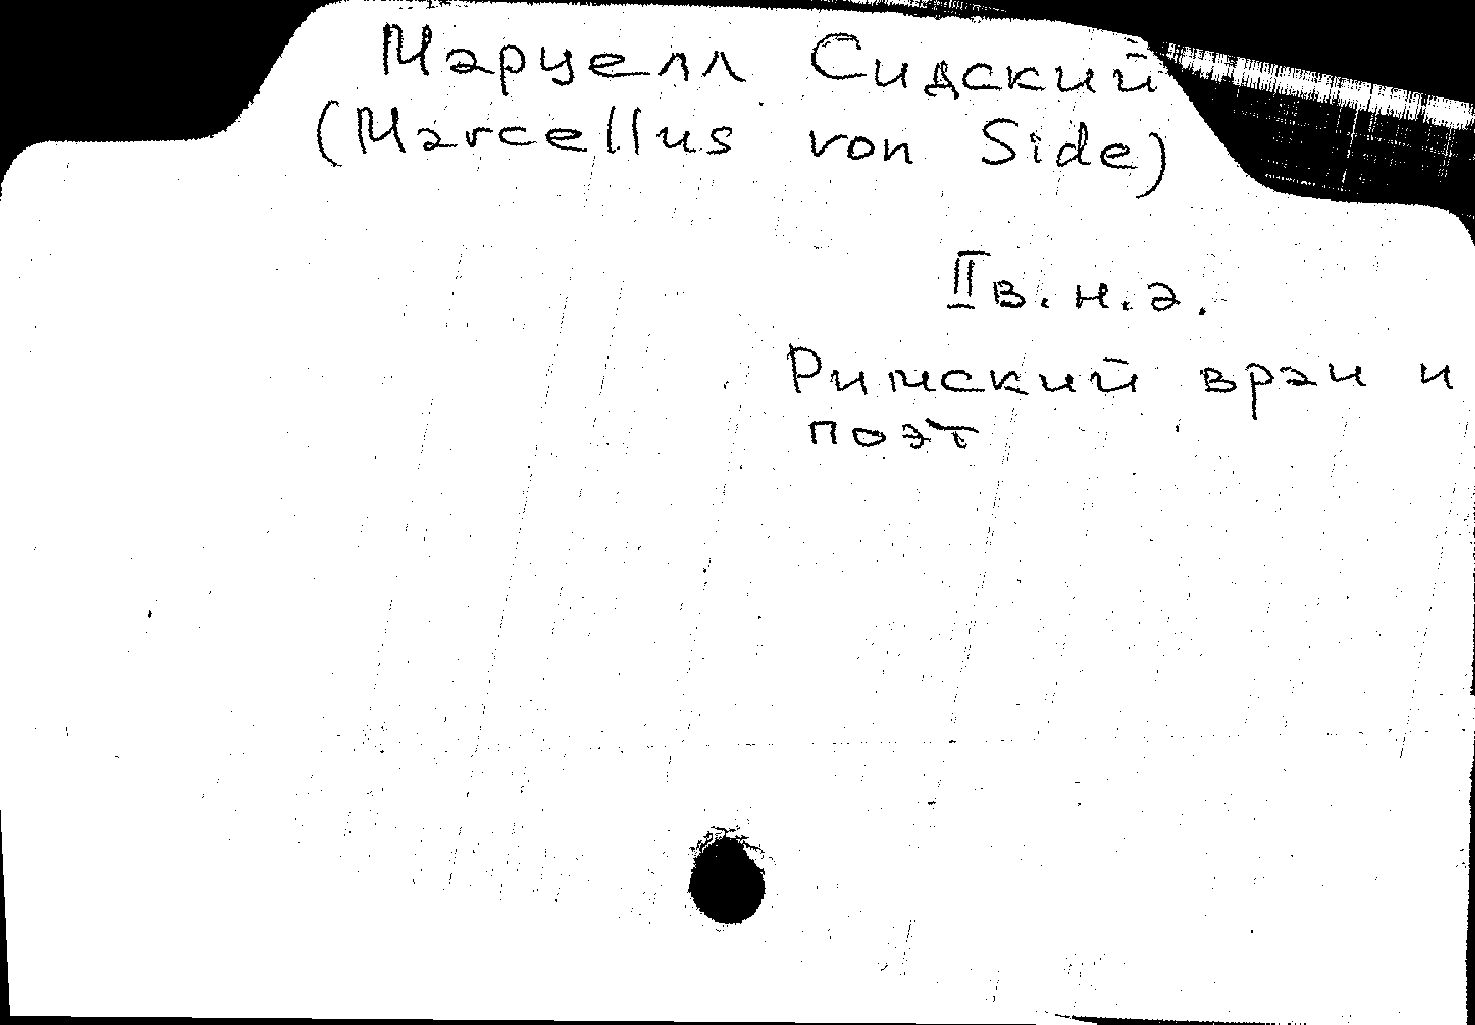 Марцелл Сидский
(Marcellus von Side)
II в. н. э.
Римский врач и
поэт